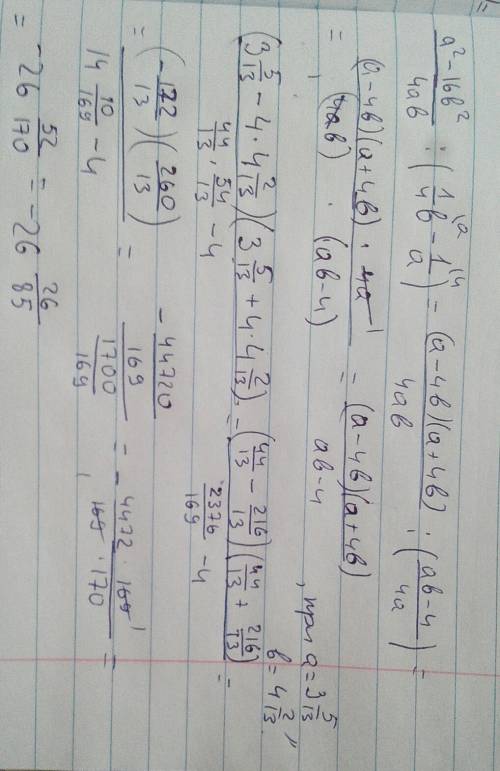 (a²-16b²)/4ab : (1/4b - 1/a) = (a-4b)(a+4b)/4ab · (ab-4/4a) =
= (a-4b)(a+4b) · 4a / (4ab) · (ab-4) = (a-4b)(a+4b) / ab-4
, при a = 3 5/13, b = 4 2/13
(3 5/13 - 4·4 2/13)(3 5/13 + 4·4 2/13) / 44/13 · 54/13 - 4 = (44/13 - 216/13)(44/13 + 216/13) / 2376/169 - 4 =
= (-172/13)(260/13) / 14 10/169 - 4 = -44720/169 / 1700/169 = - 4472 · 169 / 169 · 170 =
= -26 52/170 = -26 26/85